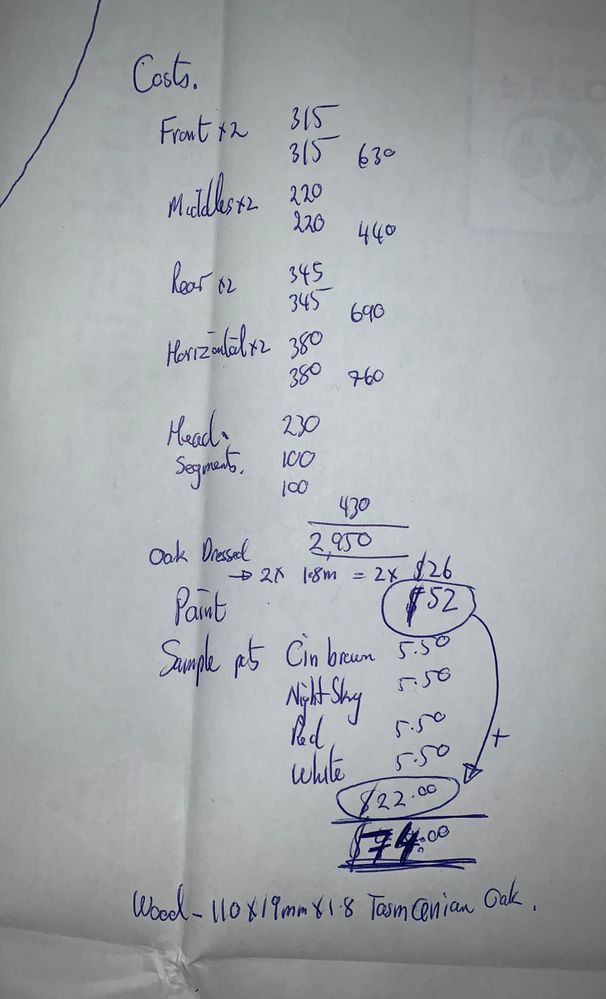 Costs.
Front x2 315
315 630
Middles x2 220
220 440
Rear x2 345
345 690
Horizontal x2 380
380 760
Head. 230
Segments. 100
100
430
2,950
Oak Dressed
→ 2x 1.8m = 2x $26
Paint $52
Sample pots Cin brown 5.50
Night Sky 5.50
Red 5.50
White 5.50
+
$22.00
$74.00
Wood - 110 x 19mm x 1.8 Tasmanian Oak.